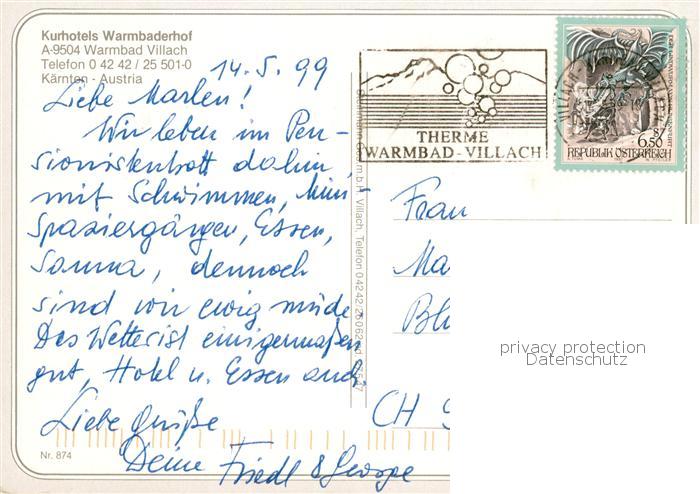 Kurhotels Warmbaderhof
A-9504 Warmbad Villach
Telefon 0 42 42 / 25 501-0
Kärnten - Austria
14.5.99
Liebe Marlen!
Wir leben im Pen-
sionistenbett dahin,
mit Schwimmen, Mini-
spaziergängen, Essen,
Sauna, dennoch
sind wir ewig müde.
Das Wetter ist einigermaßen
gut, Hotel u. Essen auch.
Liebe Grüße
Deine Friedl & George
Nr. 874
THERME
WARMBAD-VILLACH
6.50
REPUBLIK ÖSTERREICH
Frau
Ma
Bl
CH
privacy protection
Datenschutz